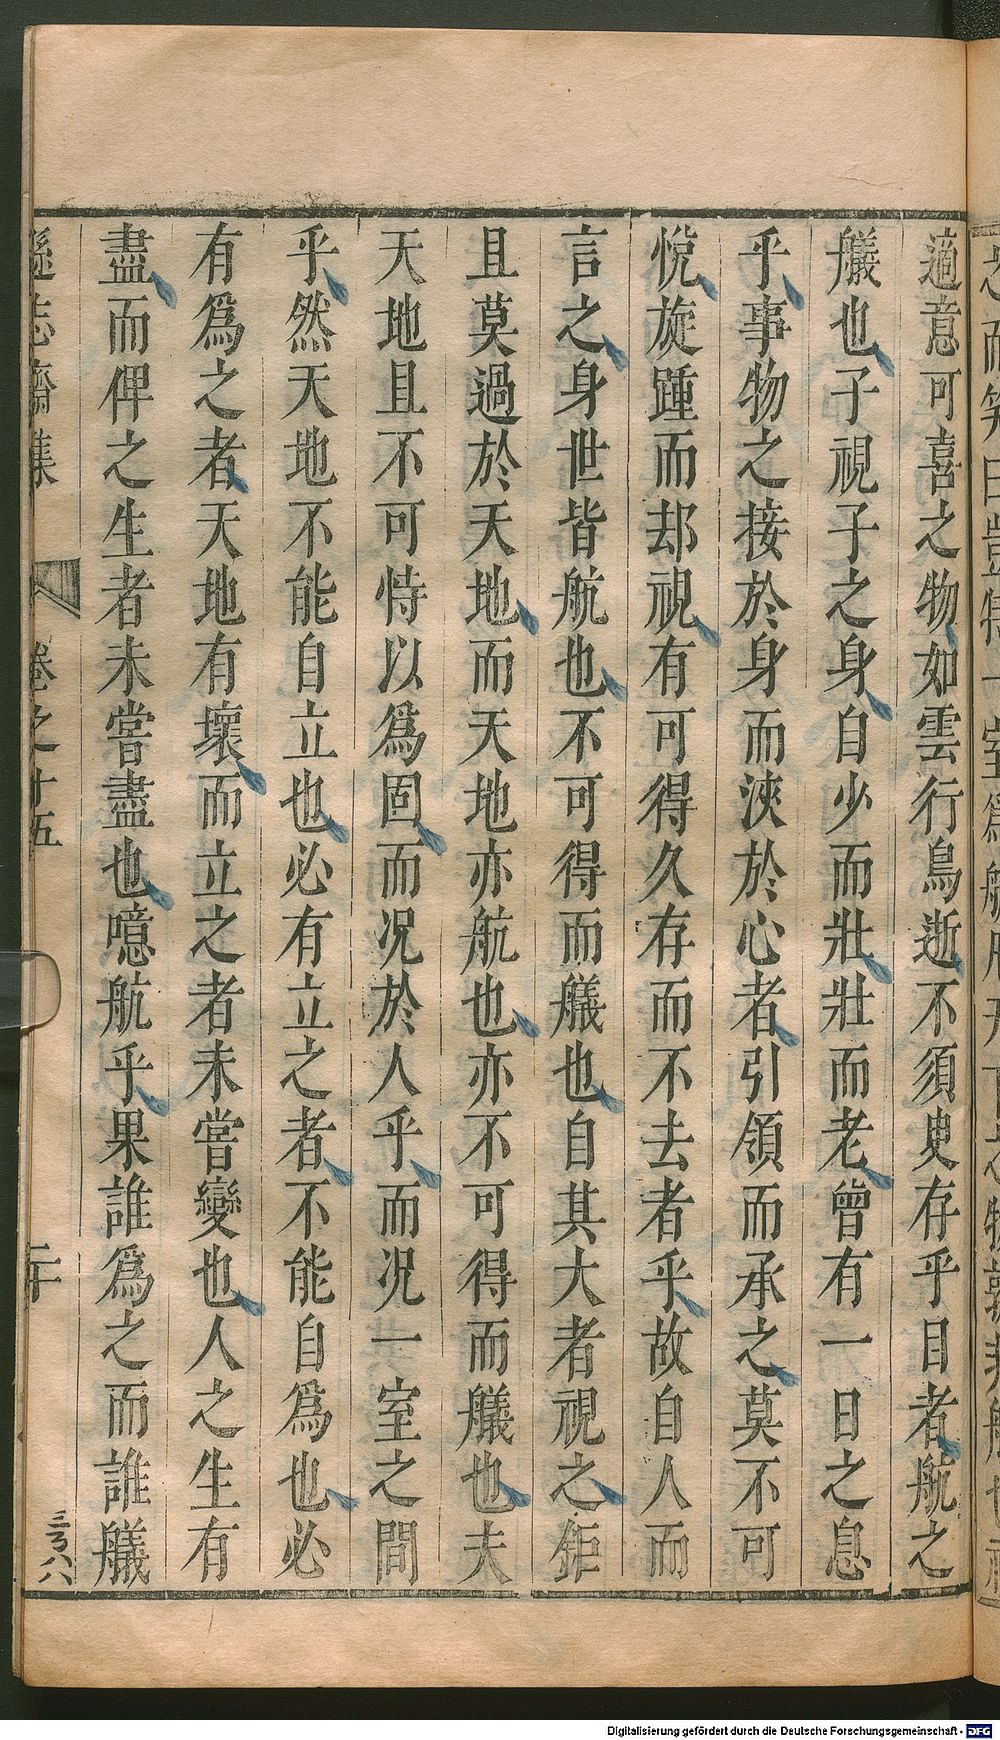 適意可喜之物如雲行鳥逝不須臾存乎目者航之
艤也子視子之身自少而壯壯而老曾有一日之息
乎事物之接於身而浹於心者引領而承之莫不可
悅旋踵而却視有可得久存而不去者乎故自人而
言之身世皆航也不可得而艤也自其大者視之鉅
且莫過於天地而天地亦航也亦不可得而艤也夫
天地且不可恃以爲固而况於人乎而况一室之間
乎然天地不能自立也必有立之者不能自爲也必
有爲之者天地有壞而立之者未嘗變也人之生有
盡而俾之生者未嘗盡也噫航乎果誰爲之而誰艤
遜志齋集 卷之十五 二十
Digitalisierung gefördert durch die Deutsche Forschungsgemeinschaft - DFG